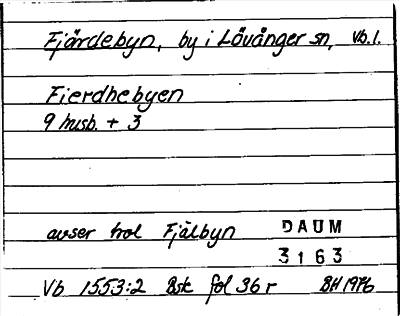 Fjärdebyn, by i Lövånger sn, Vb.l.
Fierdhebyen
9 husb. + 3
avser trol Fjälbyn DAUM
3163
Vb 1553:2 Bsk fol 36 r BH 1976